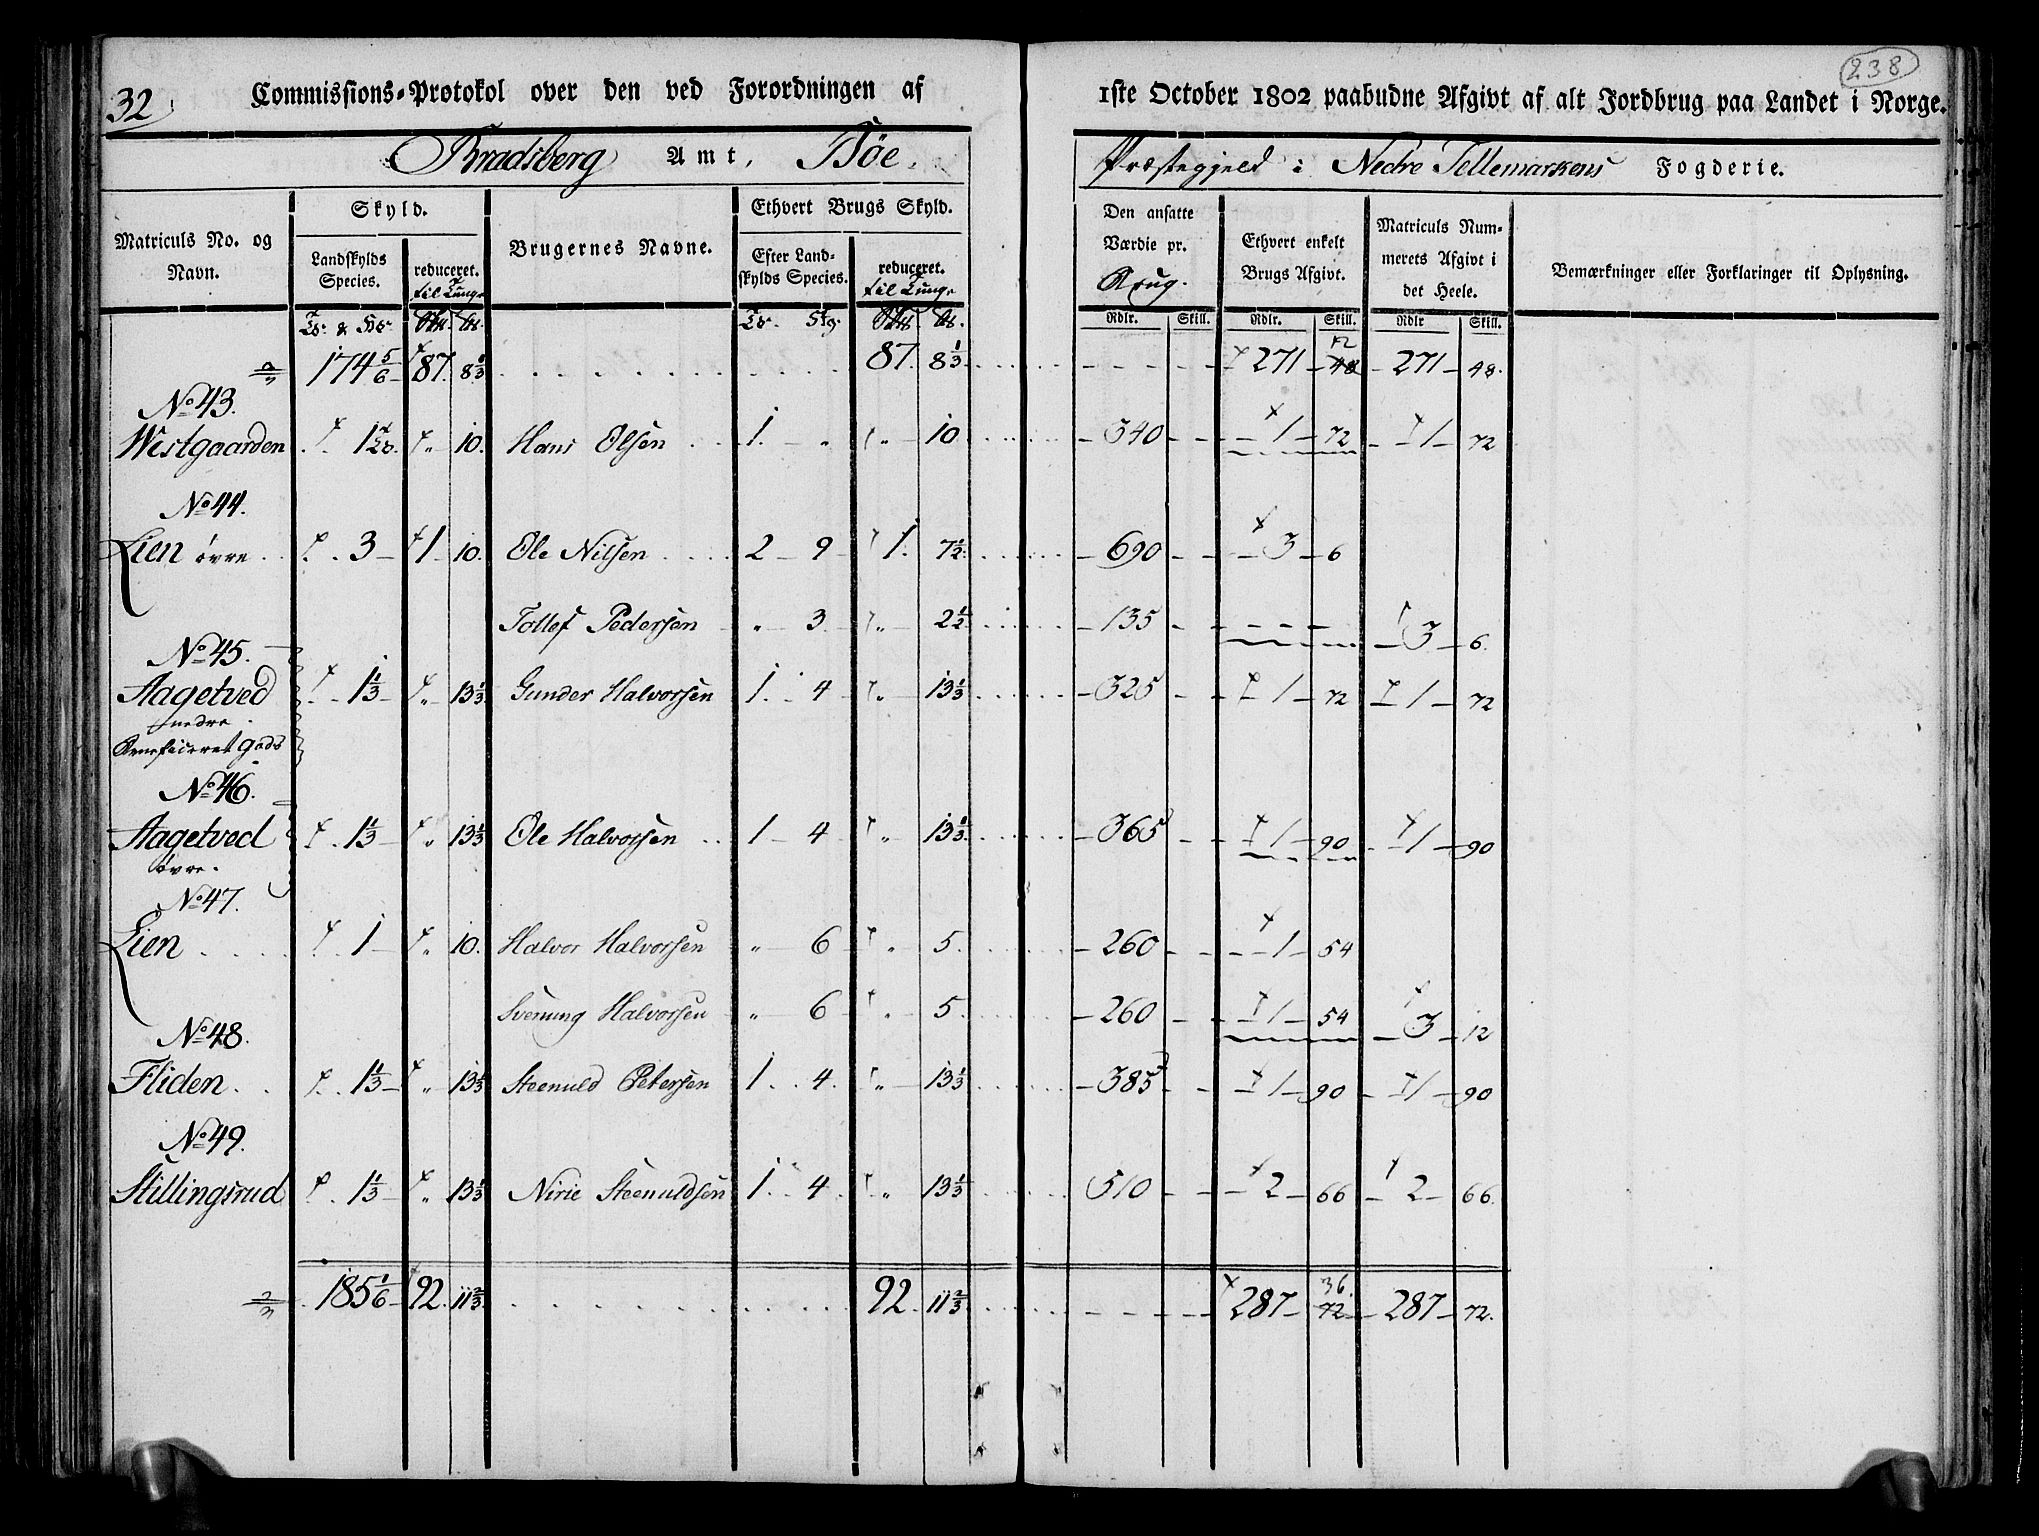 32.
Commissions-Protokol over den ved Forordningen af
1ste October 1802 paabudne Afgivt af alt Jordbrug paa Landet i Norge.
238
Bradsberg Amt, Bøe
Præstegjeld i Nedre Tellemarkens Fogderie.
Matriculs No. og Navn.
Skyld.
Landskylds Species.
reduceret.
Brugernes Navne.
Ethvert Brugs Skyld.
Efter Landskylds Species.
reduceret.
Den ansatte Værdie pr. Brug.
Ethvert enkelt Brugs Afgivt.
Matriculs Nummerets Afgivt i det Heele.
Bemærkninger eller Forklaringer til Oplysning.
Rdlr. Skill. Rdlr. Skill. Rdlr Skill.
174 5/6 87. 8 1/3 87. 8 1/3 271 48 271 48.
No 43.
Westgaarden 1 10. Hans Olsen 1. 10 340 1 72 1 72
No 44.
Lien øvre 3 1 10. Ole Nilsen 2 9 1. 7 1/2 690 3 6
Tollef Pedersen 3 2 1/2 135 3 6.
No 45.
Aagetved 1 1/3 13 1/3 Gunder Halvorsen 1. 4 13 1/3 325 1 72 1 72
nedre
Beneficeret Gods
No 46.
Aagetved 1 1/3 13 1/3 Ole Halvorsen 1 4 13 1/3 365 1 90 1 90
øvre.
No 47.
Lien 1 10. Halvor Halvorsen 6 5. 260 1 54
Svenung Halvorsen 6 5. 260 1 54 3 12
No 48.
Fliden 1 1/3 13 1/3 Steenuld Petersen 1. 4. 13 1/3 385 1 90 1 90
No 49.
Stillingsrud 1 1/3 13 1/3 Nirie Steenuldsen 1. 4. 13 1/3 510 2 66 2 66.
36.
185 1/6 92. 11 2/3 92. 11 2/3 287 72 287 72.